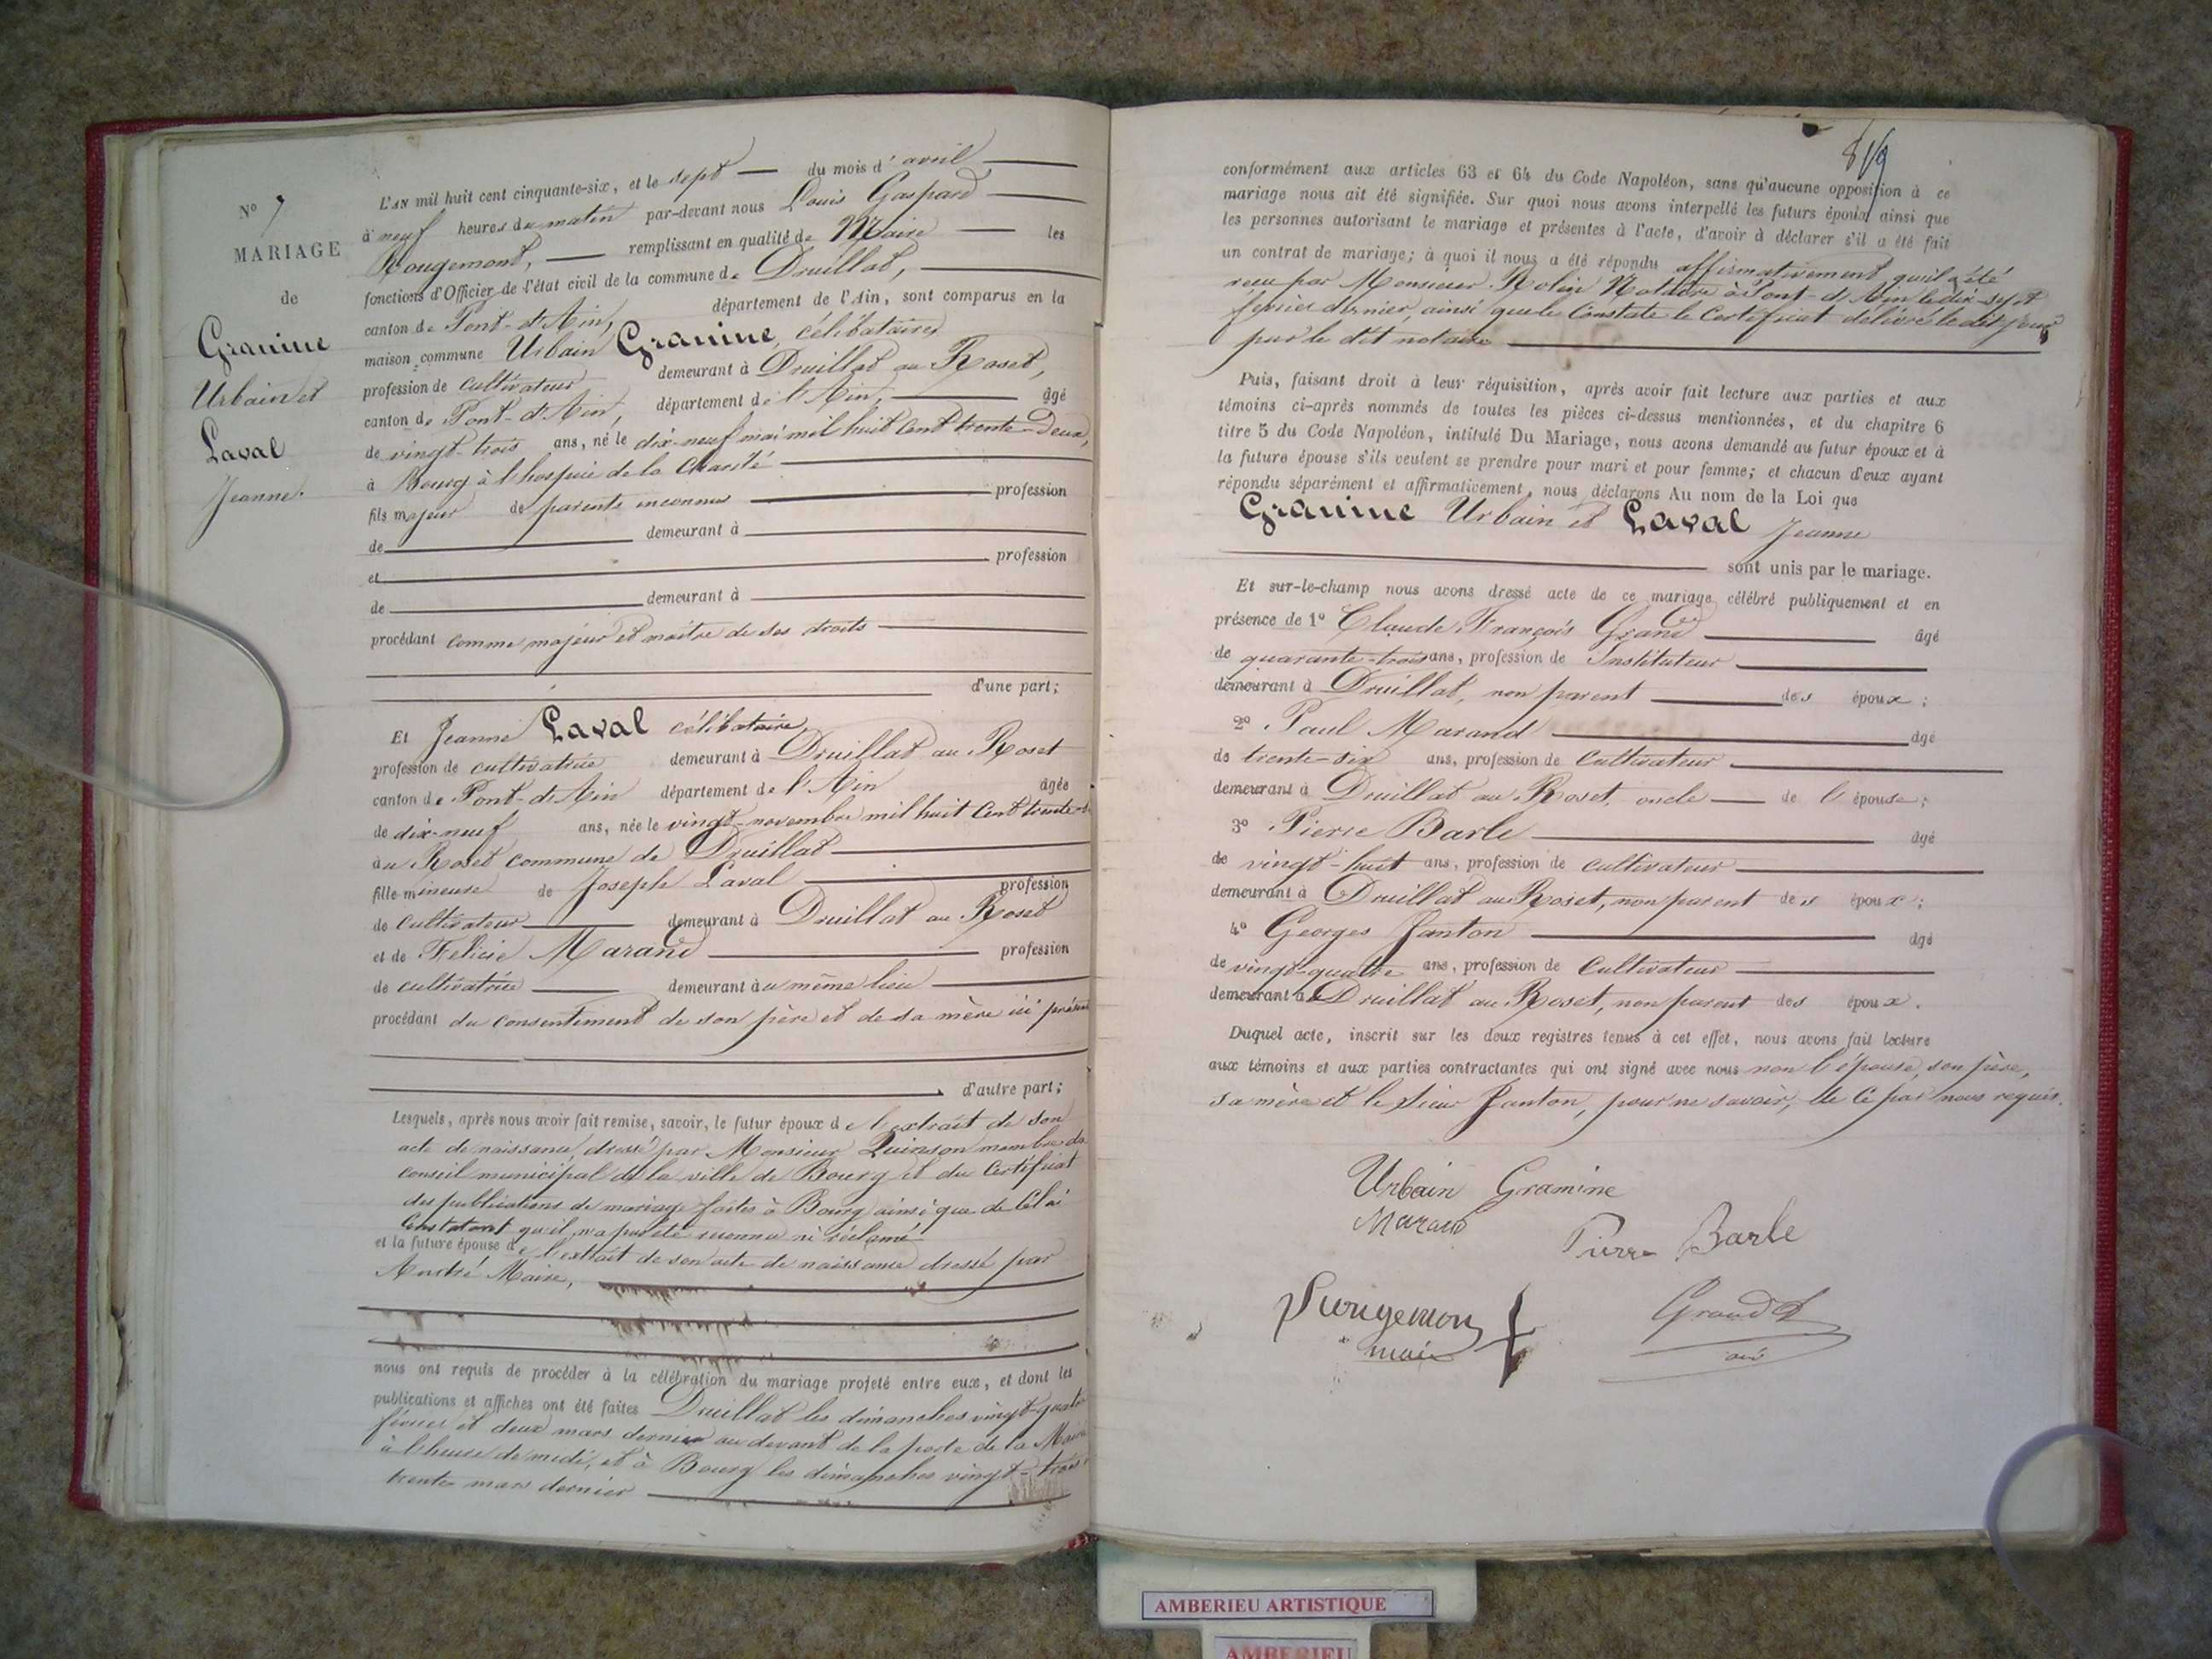 N° 7
MARIAGE
de
Gramine
Urbain et
Laval
Jeanne.
L'AN mil huit cent cinquante-six, et le sept du mois d'avril
à neuf heures du matin par-devant nous Louis Gaspard
Rougemont, remplissant en qualité de Maire les
fonctions d'Officier de l'état civil de la commune de Druillat,
canton de Pont-d'Ain, département de l'Ain, sont comparus en la
maison commune Urbain Gramine, célibataire,
profession de cultivateur demeurant à Druillat au Roset,
canton de Pont-d'Ain, département de l'Ain, âgé
de vingt-trois ans, né le dix-neuf mai mil huit cent trente-deux,
à Bourg à l'hospice de la Charité
fils majeur de parents inconnus profession
de demeurant à
et profession
de demeurant à
procédant comme majeur et maître de ses droits
d'une part;
Et Jeanne Laval célibataire
profession de cultivatrice demeurant à Druillat au Roset
canton de Pont-d'Ain département de l'Ain âgée
de dix-neuf ans, née le vingt-novembre mil huit cent trente-
au Roset commune de Druillat
fille mineure de Joseph Laval profession
de cultivateur demeurant à Druillat au Roset
et de Félicie Marand profession
de cultivatrice demeurant au même lieu
procédant du consentement de son père et de sa mère ici présents
d'autre part;
Lesquels, après nous avoir fait remise, savoir, le futur époux de l'extrait de son
acte de naissance, dressé par Monsieur Quinson membre du
conseil municipal de la ville de Bourg et du certificat
des publications de mariage faites à Bourg ainsi que de celui
constatant qu'il n'a pas été reconnu ni réclamé
et la future épouse de l'extrait de son acte de naissance dressé par
Maire,
nous ont requis de procéder à la célébration du mariage projeté entre eux, et dont les
publications et affiches ont été faites Druillat les dimanches vingt-quatre
février et deux mars dernier au devant de la porte de la Mairie
à l'heure de midi, et à Bourg les dimanches vingt-trois
trente mars dernier
conformément aux articles 63 et 64 du Code Napoléon, sans qu'aucune opposition à ce
mariage nous ait été signifiée. Sur quoi nous avons interpellé les futurs époux ainsi que
les personnes autorisant le mariage et présentes à l'acte, d'avoir à déclarer s'il a été fait
un contrat de mariage; à quoi il nous a été répondu affirmativement qu'il a été
reçu par Monsieur Rolin Notaire à Pont-d'Ain le dix-sept
février dernier, ainsi que le constate le certificat délivré le dit jour
par le dit notaire
Puis, faisant droit à leur réquisition, après avoir fait lecture aux parties et aux
témoins ci-après nommés de toutes les pièces ci-dessus mentionnées, et du chapitre 6
titre 5 du Code Napoléon, intitulé Du Mariage, nous avons demandé au futur époux et à
la future épouse s'ils veulent se prendre pour mari et pour femme; et chacun d'eux ayant
répondu séparément et affirmativement, nous déclarons Au nom de la Loi que
Gramine Urbain et Laval Jeanne
sont unis par le mariage.
Et sur-le-champ nous avons dressé acte de ce mariage célébré publiquement et en
présence de 1° Claude François Grand âgé
de quarante-trois ans, profession de Instituteur
demeurant à Druillat, non parent des époux;
2° Paul Marand âgé
de trente-six ans, profession de cultivateur
demeurant à Druillat au Roset, oncle de l'épouse;
3° Pierre Barle âgé
de vingt-huit ans, profession de cultivateur
demeurant à Druillat au Roset, non parent des époux;
4° Georges Janton âgé
de vingt-quatre ans, profession de cultivateur
demeurant à Druillat au Roset, non parent des époux.
Duquel acte, inscrit sur les deux registres tenus à cet effet, nous avons fait lecture
aux témoins et aux parties contractantes qui ont signé avec nous non l'épouse, son père,
sa mère et le sieur Janton, pour ne savoir, de ce par nous requis.
Urbain Gramine
Marand
Pierre Barle
Rougemont
maire
Grand
AMBERIEU ARTISTIQUE
AMBERIEU